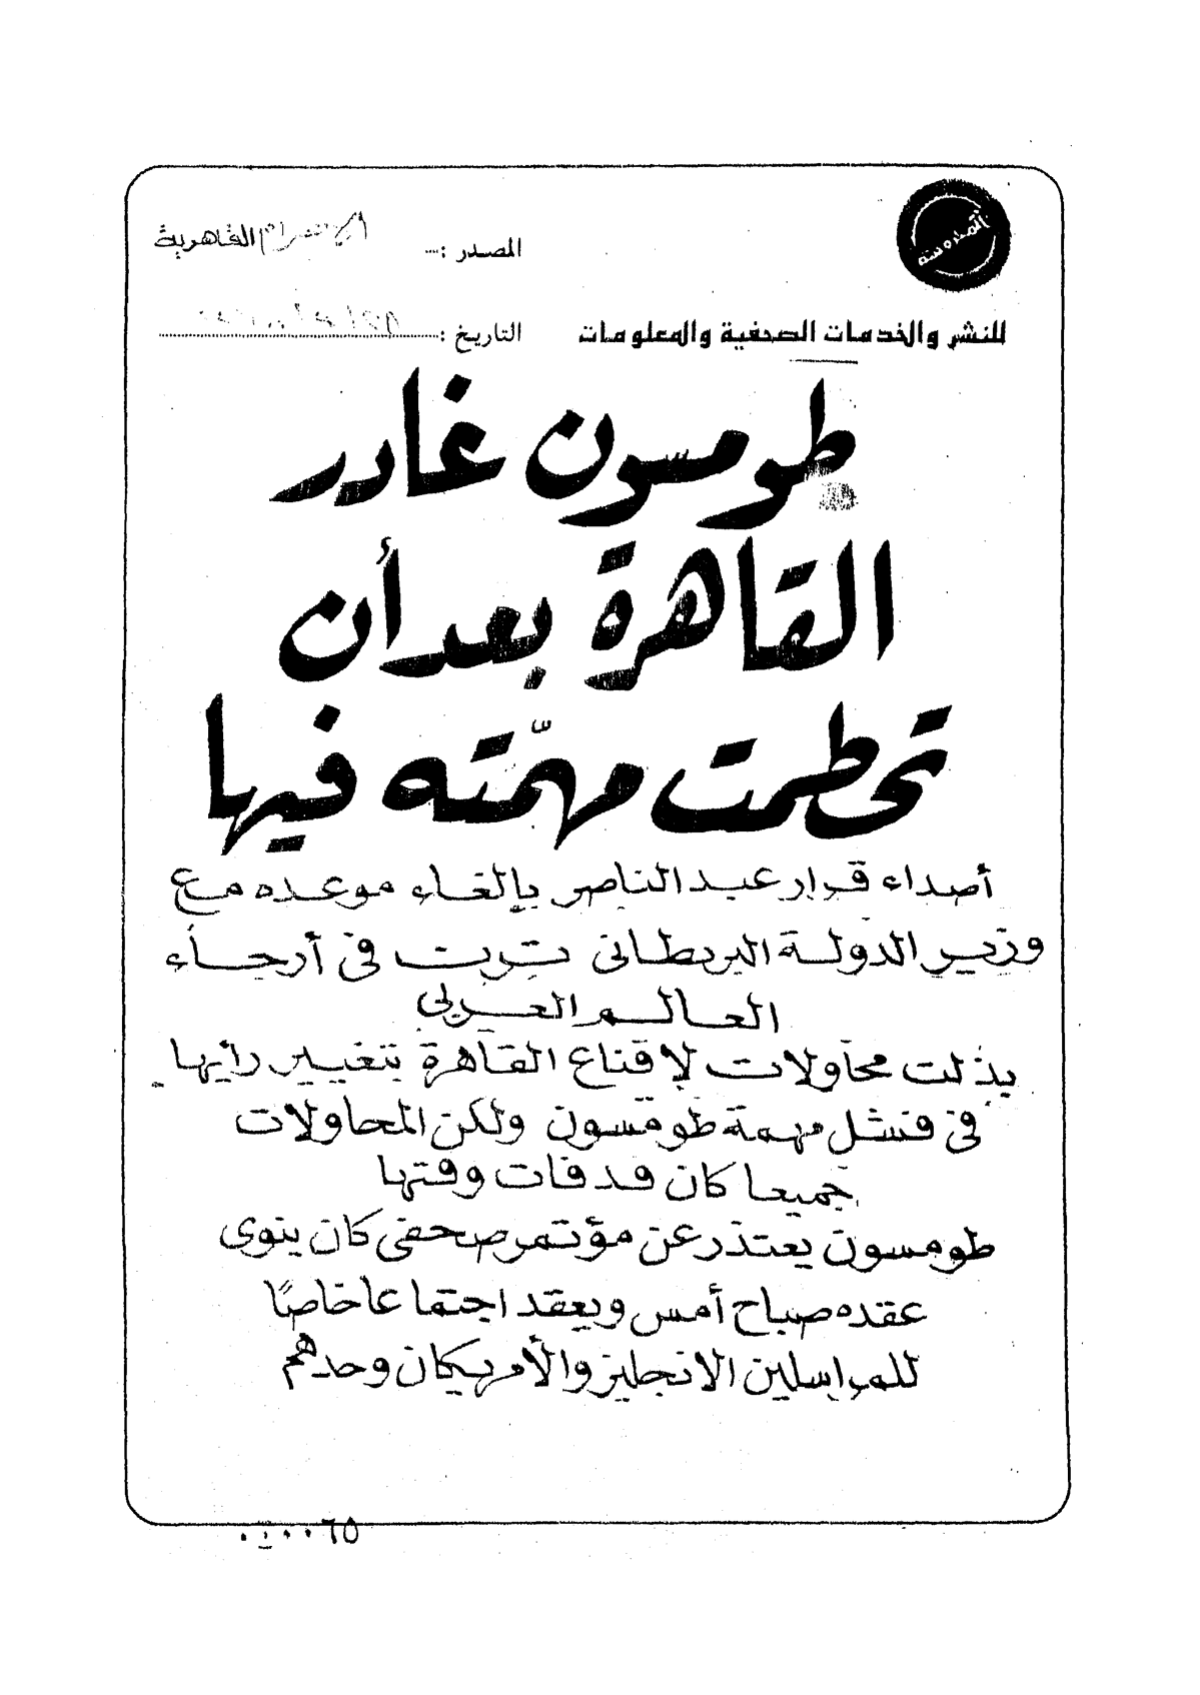 المحروسة
المصدر : الأهرام القاهرية
للنشر والخدمات الصحفية والمعلومات
التاريخ :
طومسون غادر
القاهرة بعد أن
تحطمت مهمّته فيها
أصداء قرار عبد الناصر بإلغاء موعده مع
وزير الدولة البريطانى ترددت فى أرجاء
العالم العربى
بذلت محاولات لإقناع القاهرة بتغيير رأيها
فى فشل مهمة طومسون ولكن المحاولات
جميعا كان قد فات وقتها
طومسون يعتذر عن مؤتمر صحفى كان ينوى
عقده صباح أمس ويعقد اجتماعا خاصًا
للمراسلين الانجليز والأمريكان وحدهم